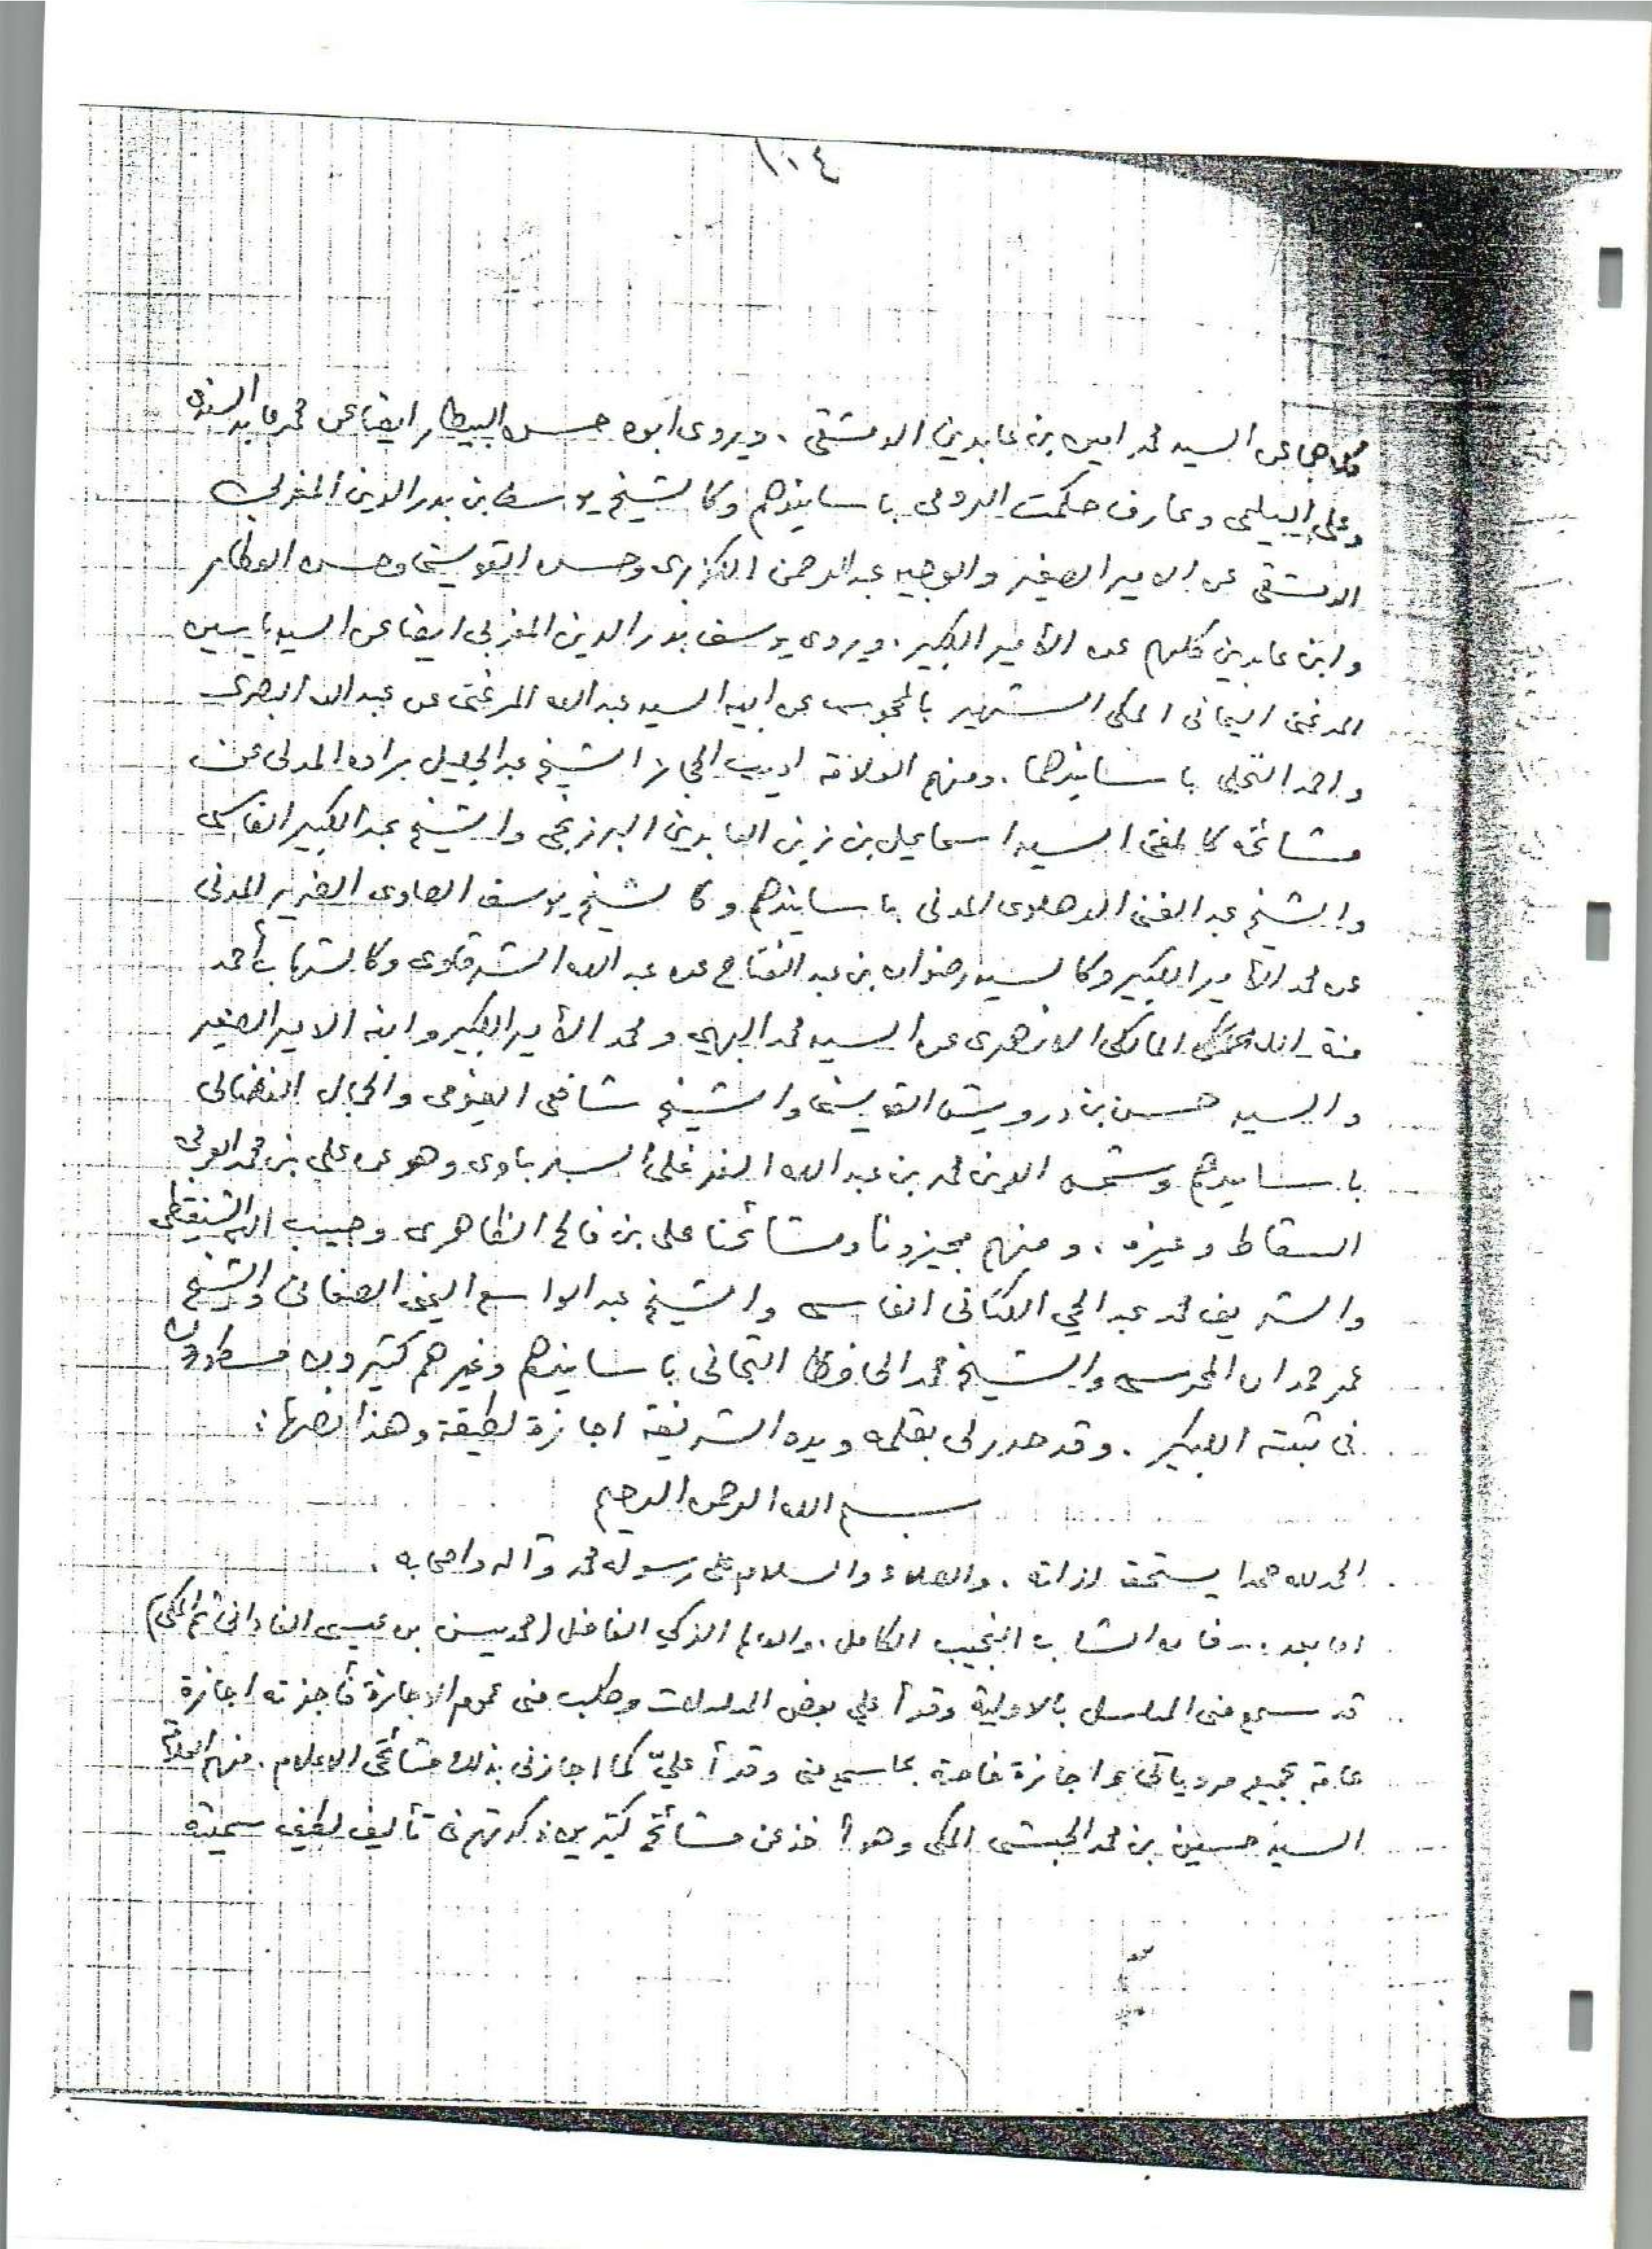 ١٠٠٤
كلاهما عن السيد محمد امين بن عابدين الدمشقى . ويروى ابوه حسن البيطار ايضا عن محمد عابد السندى
وعلى البيلى وعارف حكمت الرومى باسانيدهم وكالشيخ يوسف بن بدر الدين المغربى
الدمشقى عن الامير الصغير والوجيه عبد الرحمن الكزبرى وحسن القويسنى وحسن العطار
وابن عابدين كلهم عن الأمير الكبير . ويروى يوسف بدر الدين المغربى ايضا عن السيد ياسين
المرغنى اليمانى المكى الشهير بالمحجوب عن ابيه السيد عبد الله المرغنى عن عبد الله البصرى
واحمد النخلى باسانيدهما . ومنهم العلامة اديب الحجاز الشيخ عبد الجليل براده المدنى عن
مشائخه كالمفتى السيد اسماعيل بن زين العابدين البرزنجى والشيخ عبد الكبير الفاسى
والشيخ عبد الغنى الدهلوى المدنى باسانيدهم وكالشيخ يوسف الصاوى الضرير المدنى
عن محمد الأمير الكبير وكالسيد رضوان بن عبد الفتاح عن عبد الله الشرقاوى وكالشهاب أحمد
منة الله المالكى الازهرى عن السيد محمد البهي ومحمد الأمير الكبير وابنه الامير الصغير
والسيد حسن بن درويش القويسنى والشيخ شافعى الفيومى والجمال الفضالى
باسانيدهم وشمس الدين محمد بن عبد الله وهو عن على بن محمد العربى
السقاط وغيره . ومنهم مجيزونا ومشائخنا على بن فالح الظاهرى وحبيب الله الشنقيطى
والشريف محمد عبد الحي الكتانى الفاسى والشيخ عبد الواسع اليمنى الصنعانى والشيخ
عمر حمدان المحرسى والشيخ محمد الحافظ التجانى باسانيدهم وغيرهم كثيرون مسطورون
فى ثبته الكبير . وقد حرر لى بقلمه ويده الشريفة اجازة لطيفة وهذا نصها :
بسم الله الرحمن الرحيم
الحمد لله حمدا يستحقه لذاته . والصلاة والسلام على رسوله محمد وآله واصحابه .
اما بعد .. فان الشاب النجيب الكامل . والعالم الذكي الفاضل (محمد يسن بن عيسى الفادانى ثم المكى)
قد سمع منى المسلسل بالاولية وقرأ علي بعض المسلسلات وطلب منى عموم الاجازة فأجزته اجازة
عامة بجميع مروياتى واجازة خاصة بما سمع منى وقرأ عليّ كما اجازنى بذلك مشائخى الاعلام . منهم العلامة
السيد حسين بن محمد الحبشى المكى وهو أخذ عن مشائخ كثيرين ذكرتهم فى تأليف لطيف سميته